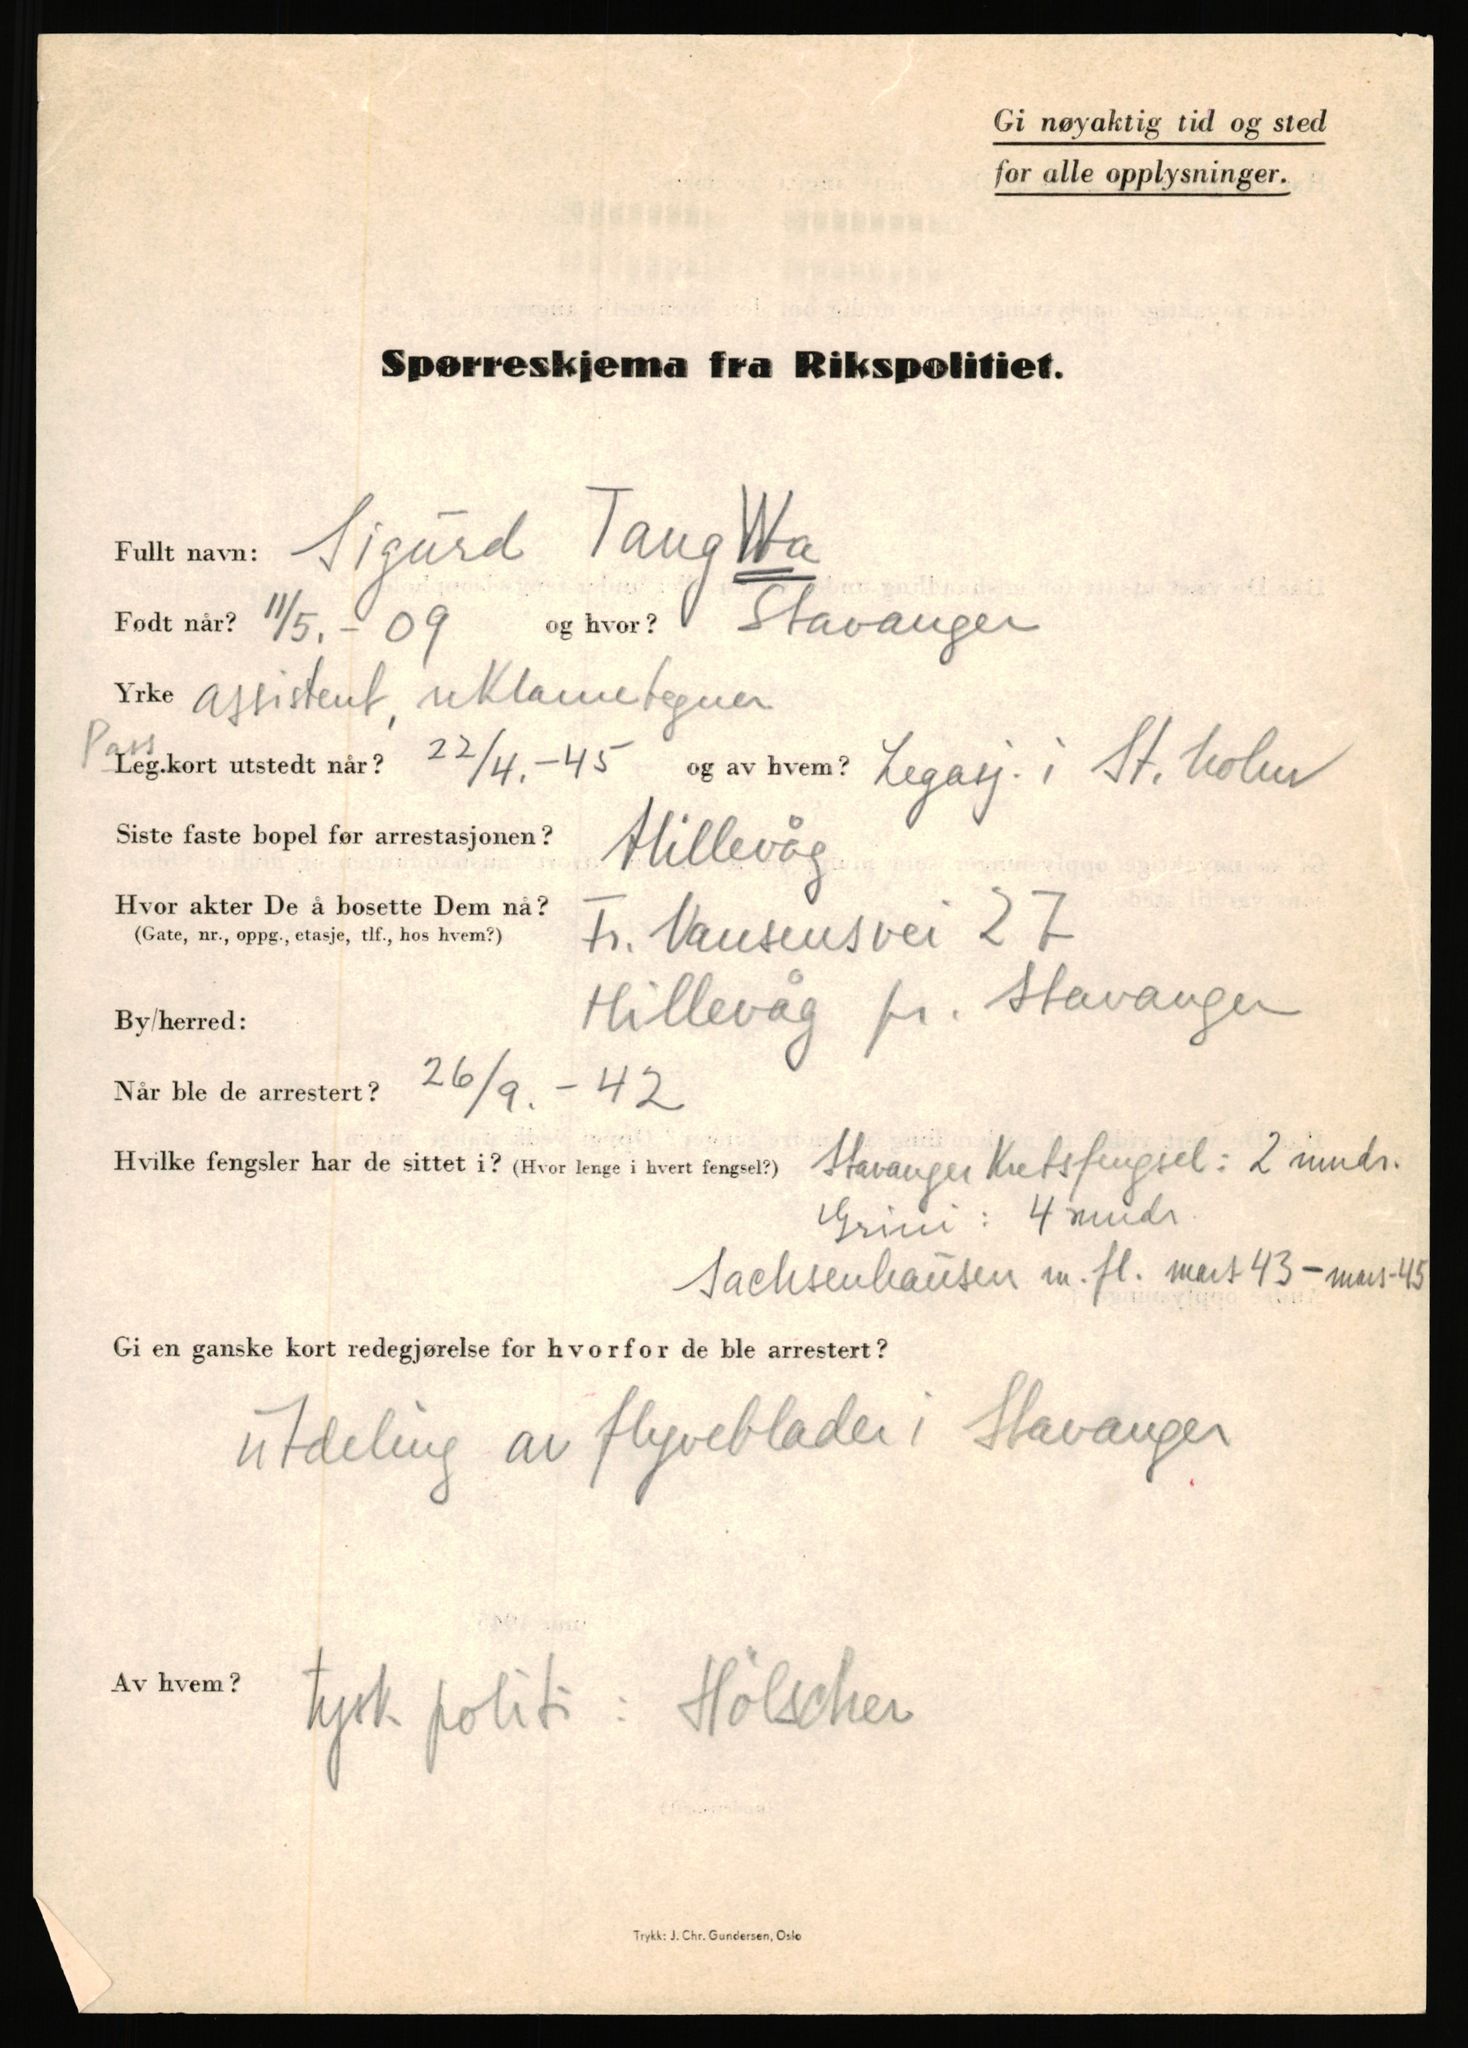 Gi nøyaktig tid og sted
for alle opplysninger.
Spørreskjema fra Rikspolitiet.
Fullt navn: Sigurd Tang Wa
Født når? 11/5. - 09 og hvor? Stavanger
Yrke assistent, reklametegner
Pass
Leg.kort utstedt når? 22/4. - 45 og av hvem? Legasj. i St.holm
Siste faste bopel før arrestasjonen? Hillevåg
Hvor akter De å bosette Dem nå? Fr. Nansensvei 27
(Gate, nr., oppg., etasje, tlf., hos hvem?)
By/herred: Hillevåg pr. Stavanger
Når ble de arrestert? 26/9. - 42
Hvilke fengsler har de sittet i? (Hvor lenge i hvert fengsel?) Stavanger Kretsfengsel: 2 mndr.
Grini: 4 mndr.
Sachsenhausen m. fl. mars 43 - mars-45
Gi en ganske kort redegjørelse for hvorfor de ble arrestert?
utdeling av flyveblader i Stavanger
Av hvem? tysk politi: Hölscher
Trykk: J. Chr. Gundersen, Oslo